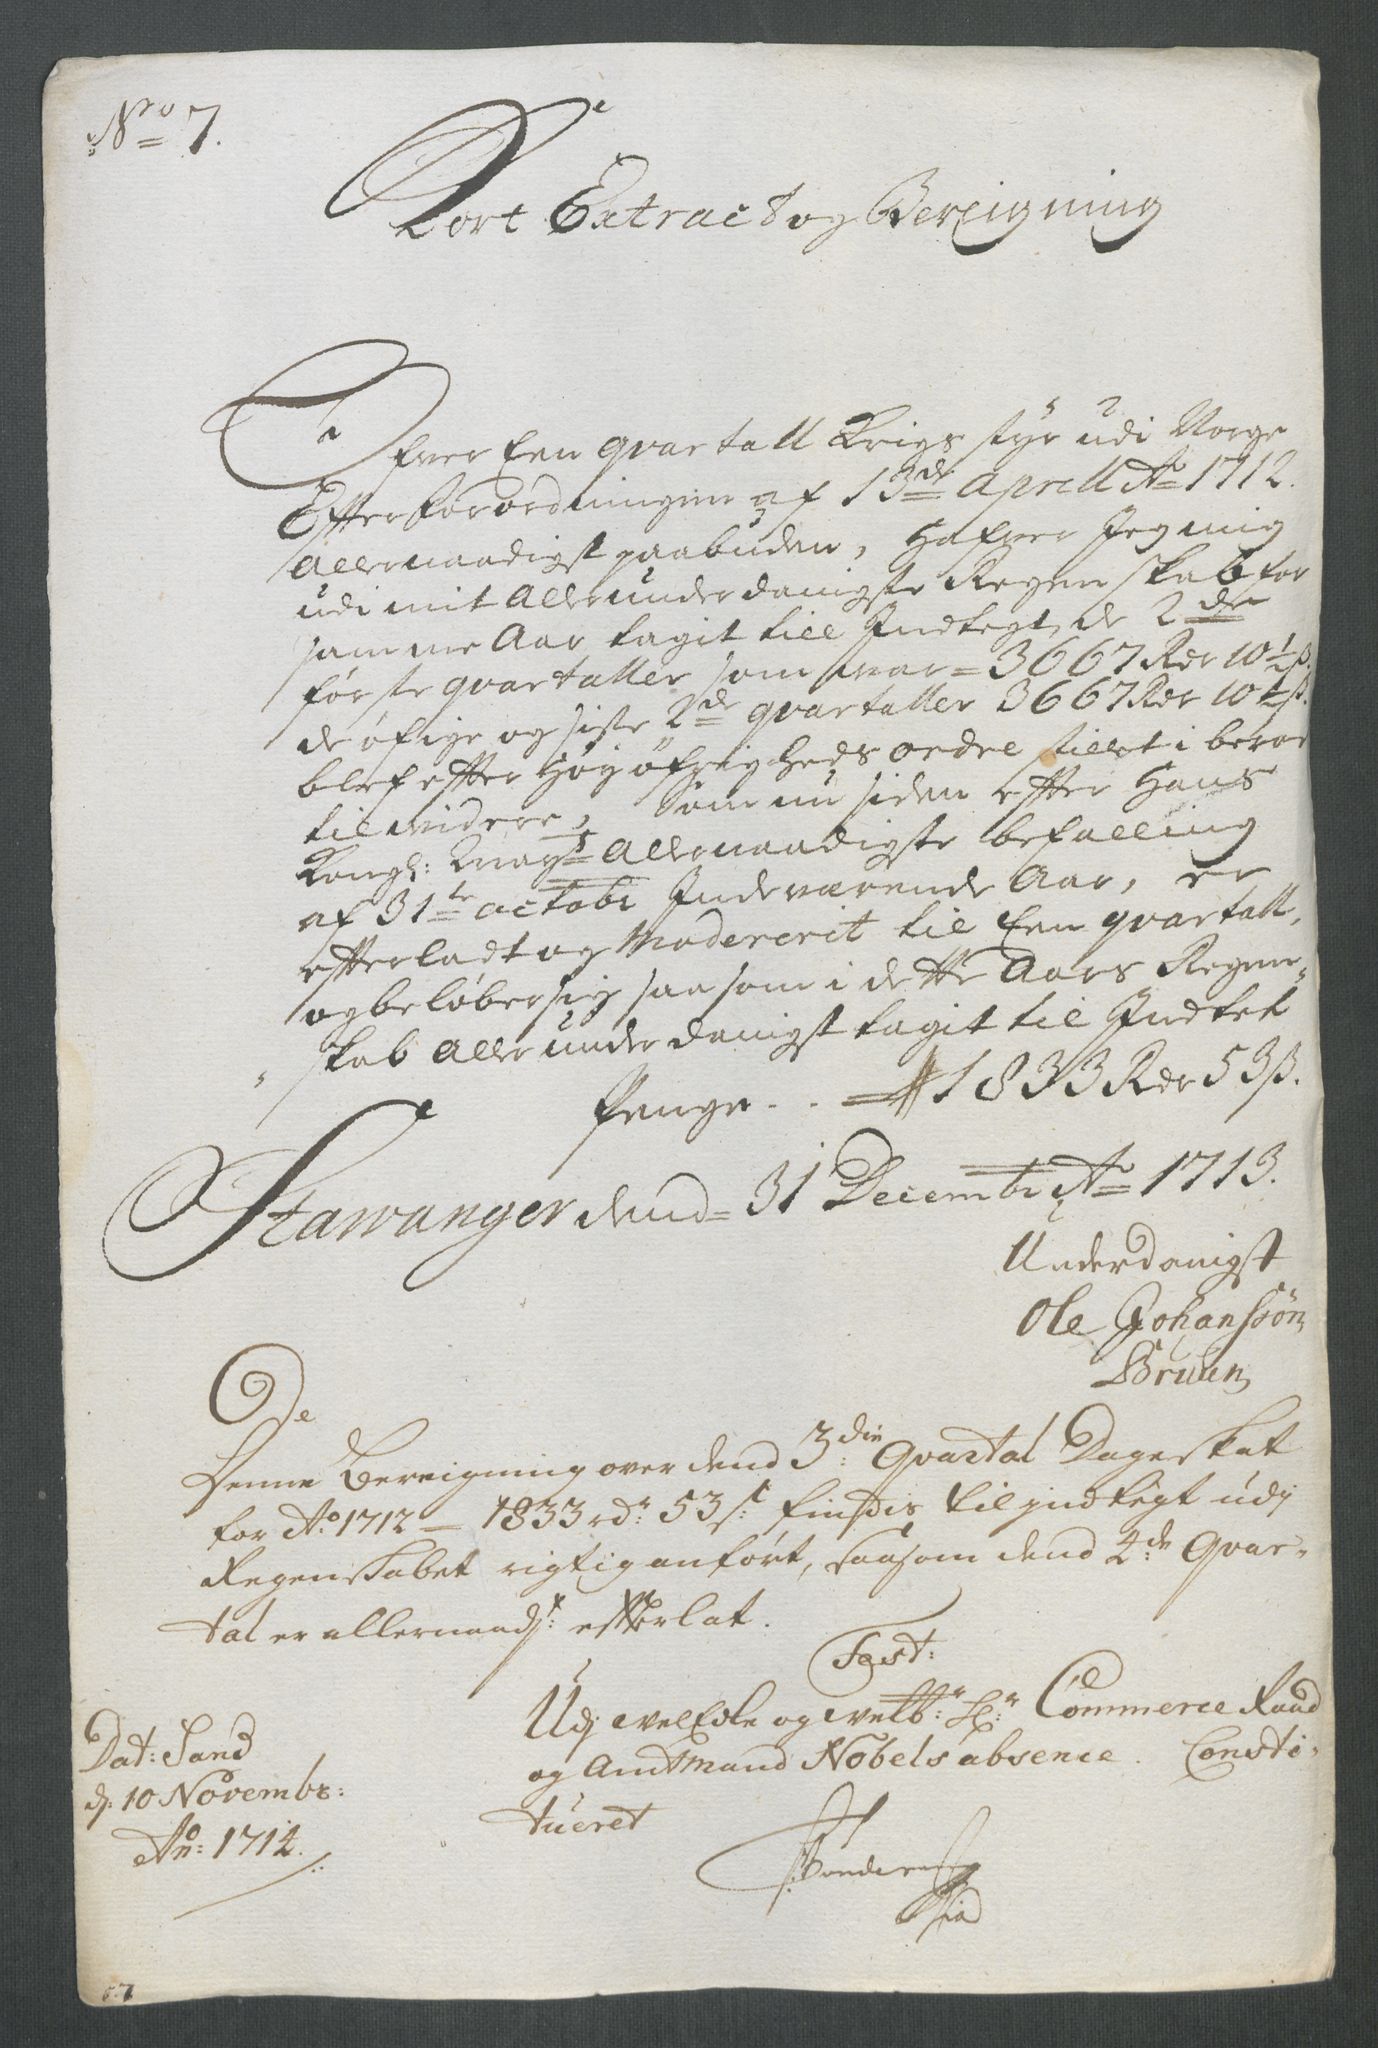 Nro 7.
Kort Extract og Bereigning
Ofver Een qvartall Krigs styr udi Norge
Efter forordningen af 13de Aprill Ao 1712.
allernaadigst paabuden, Hafver Jeg mig
udi mit allerunderdanigste Regenskab for
samme Aar tagit till Indtegt, de 2de
første qvartaller som war = 3667 Rdr 10½ s.
de øfrige og siste 2de qvartaller 3667 Rdr 10½ s.
blef efter Høyøfrigheds ordre stillet i beroe
til widere, Som nu siden efter Hans
Kongl: Mayts allernaadigste befalling
af 31te octobr Indeværende Aar, er
efterladt og Modererit til Een qvartall,
og beløber sig saasom i dette Aars Regen-
skab allerunderdanigst tagit til Indtekt
Penge . . 1833 Rdr 53 s.
Stawanger dend 31 Decembr Ao 1713.
Underdanigst
Ole Johanssøn
Bruun
Denne Bereigning over dend 3die Qvartal Dageskat
for Ao 1712 — 1833 rdr 53 s: findis til indtegt udj
Regenskabet rigtig anført, saasom dend 4de Qvar-
tal er allernaadst: efterlat.
Test:
Udj velEdle og velb: Hr: Commerce Raad
og Amtmand Nobels absence. Consti-
tueret
Dat: Sand
d. 10 Novembr:
Ao: 1714.